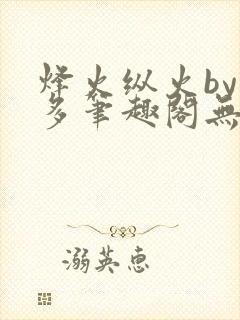 烽火纵火by
多笔趣阁無
溺英惠